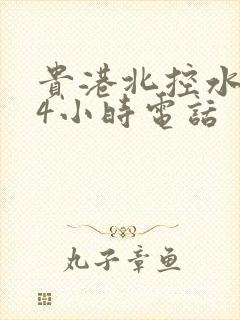 貴港北控水
4小時電話
丸子章鱼